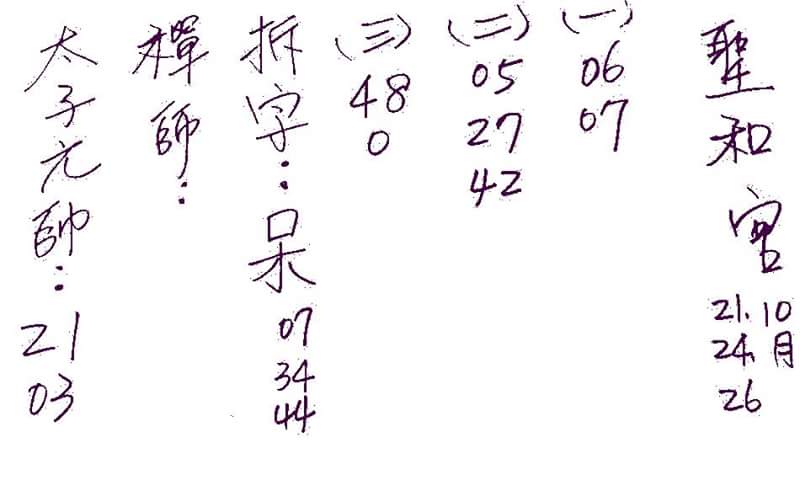 聖和宮
10月
21.
24.
26
(一)
06
07
(二)
05
27
42
(三)
48
0
拆字：呆
07
34
44
禪師：
太子元帥：
21
03